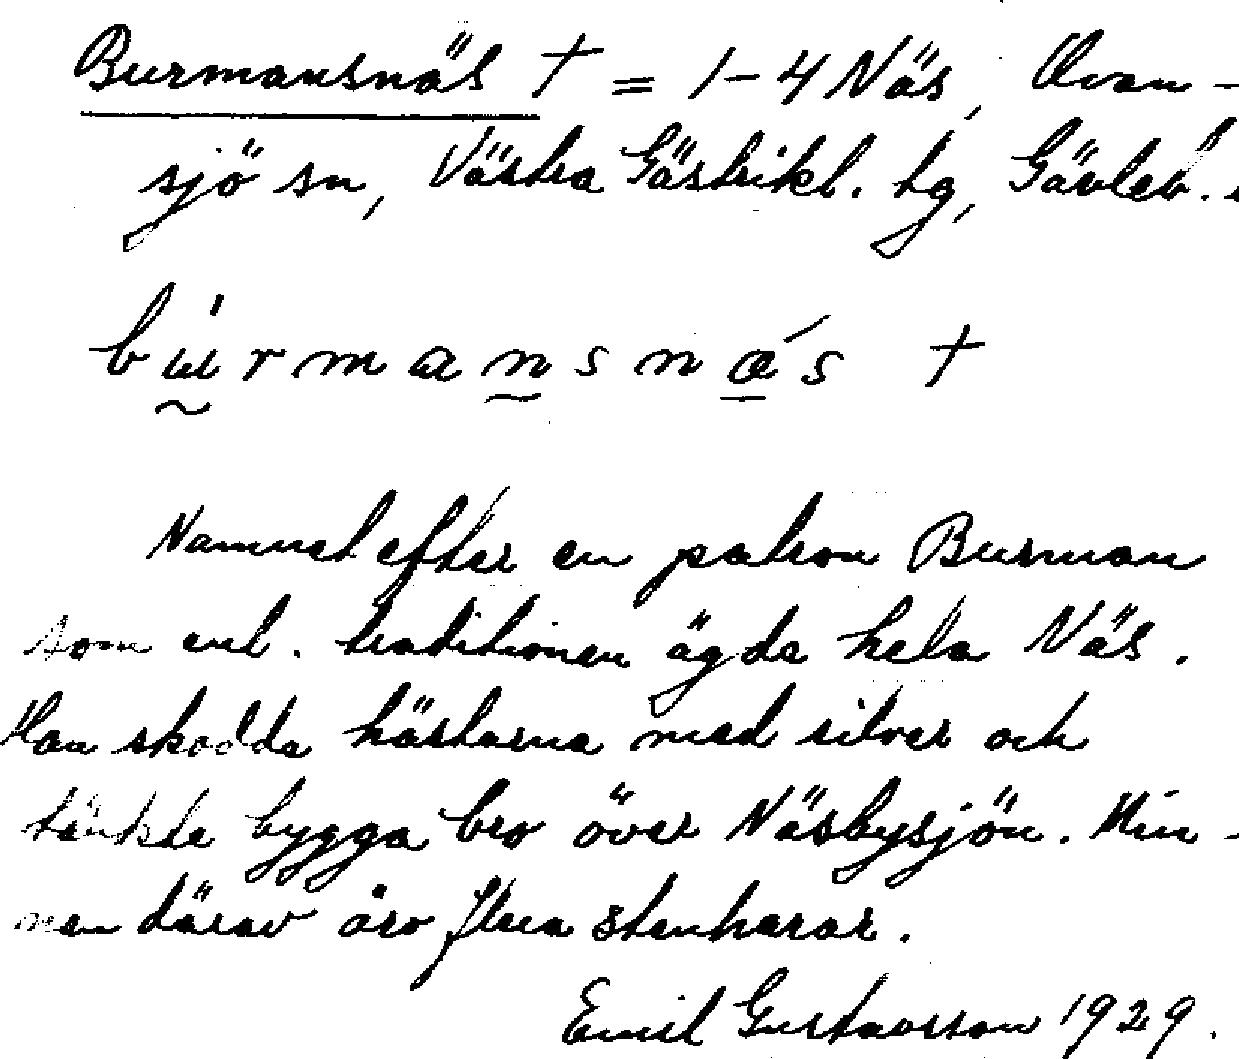 Burmansnäs † = 1-4 Näs, Ovan-
sjö sn, Västra Gästrikl. tg, Gävleb. l
búrmansnǽs †
Namnet efter en patron Burman
som enl. traditionen ägde hela Näs.
Han skodde hästarna med silver och
tänkte bygga bro över Näsbysjön. Min-
nen därav äro flera stenharar.
Emil Gustavsson 1929.